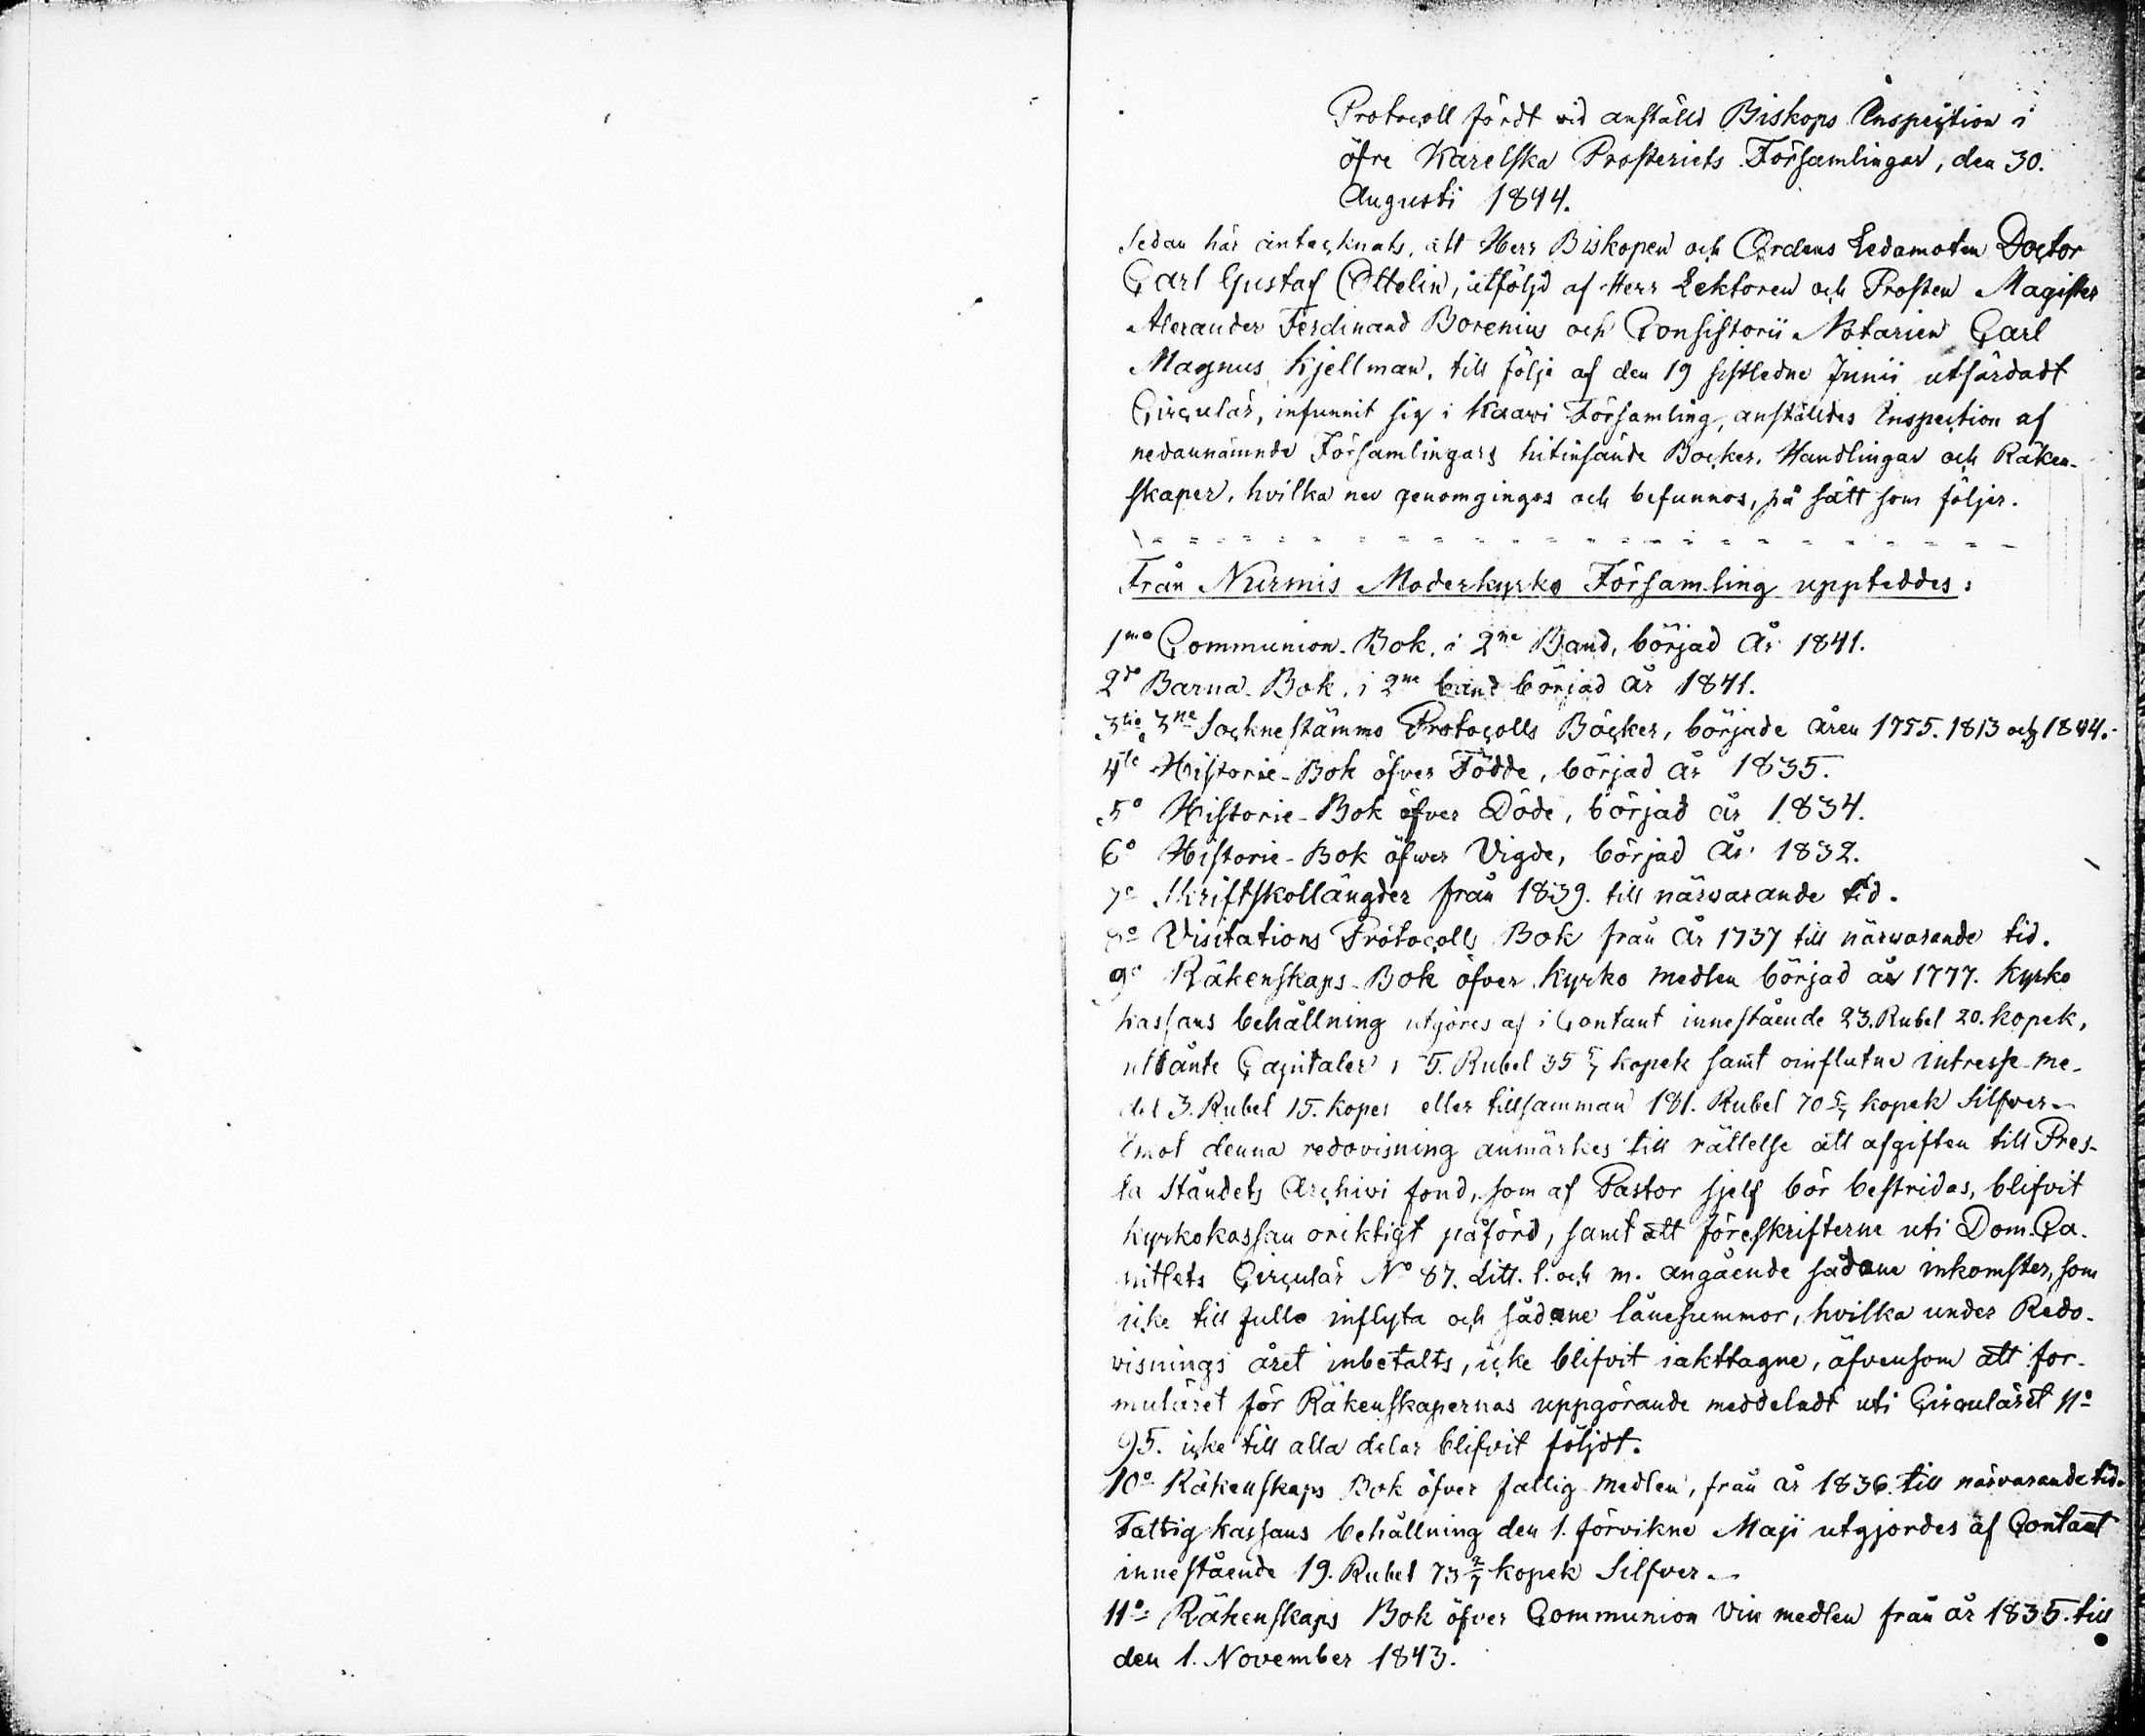 Protocoll fördt vid anställd Biskops Inspection i
öfre Karelska Prosteriets Församlingar, den 30.
Augusti 1844.
Sedan här antecknats, att Herr Biskopen och Ordens Ledamoten Doctor
Carl Gustaf Ottelin, åtföljd af Herr Lektoren och Prosten Magister
Alexander Ferdinand Borenius och Consistorii Notarien Carl
Magnus Kjellman, till följe af den 19 sistledne Junii utfärdadt
Circulär, infunnit sig i Kaavi Församling, anställdes Inspection af
nedannämnde Församlingars hitinsände Böcker, Handlingar och Räken-
skaper, hvilka nu genomgingos och befunnos, på sätt som följer.
Från Nurmis Moderkyrko Församling uppteddes:
1mo Communion-Bok, i 2ne Band, börjad År 1841.
2do Barna-Bok, i 2ne band börjad år 1841.
3tio 3ne Socknestämmo Protocolls Böcker, började åren 1755. 1813 och 1844.-
4to Historie-Bok öfver Födde, börjad år 1835.
5o Historie-Bok öfver Döde, börjad år 1834.
6o Historie-Bok öfwer Vigde, börjad År 1832.
7o Skriftskollängder från 1839. till närvarande tid.
8o Visitations Protocolls Bok från år 1737 till närwarande tid.
9o Räkenskaps-Bok öfver Kyrko medlen börjad år 1777. Kyrko
kassans behållning utgöres af i Contant innestående 23. Rubel 20. kopek,
utlånte Capitaler 5. Rubel 35 5/7 kopek samt oinflutne intresse-me-
del 3. Rubel 15. kopek eller tillsamman 181. Rubel 70 5/7 kopek Silfver.-
Emot denna redovisning anmärkes till rättelse att afgiften till Pres-
ta Ståndets Archivi fond, som af Pastor sjelf bör bestridas, blifvit
kyrkokassan oriktigt påförd, samt att föreskrifterne uti Dom-Ca-
pitlets Circulär No 87. Litt. l. och m. angående sådane inkomster, som
icke till fullo inflyta och sådane lånesummor, hvilka under Redo-
visnings året inbetalts, icke blifvit iakttagne, äfvensom att for-
muläret för Räkenskapernas uppgörande meddeladt uti Circuläret No
95. icke till alla delar blifvit följdt.
10o Räkenskaps Bok öfver fattig medlen, från år 1836. till närvarande tid.
Fattig kassans behållning den 1. förvikne Maji utgjordes af Contant
innestående 19. Rubel 73 2/7 kopek Silfver.-
11o Räkenskaps Bok öfver Communion Vin medlen från år 1835. till
den 1. November 1843.